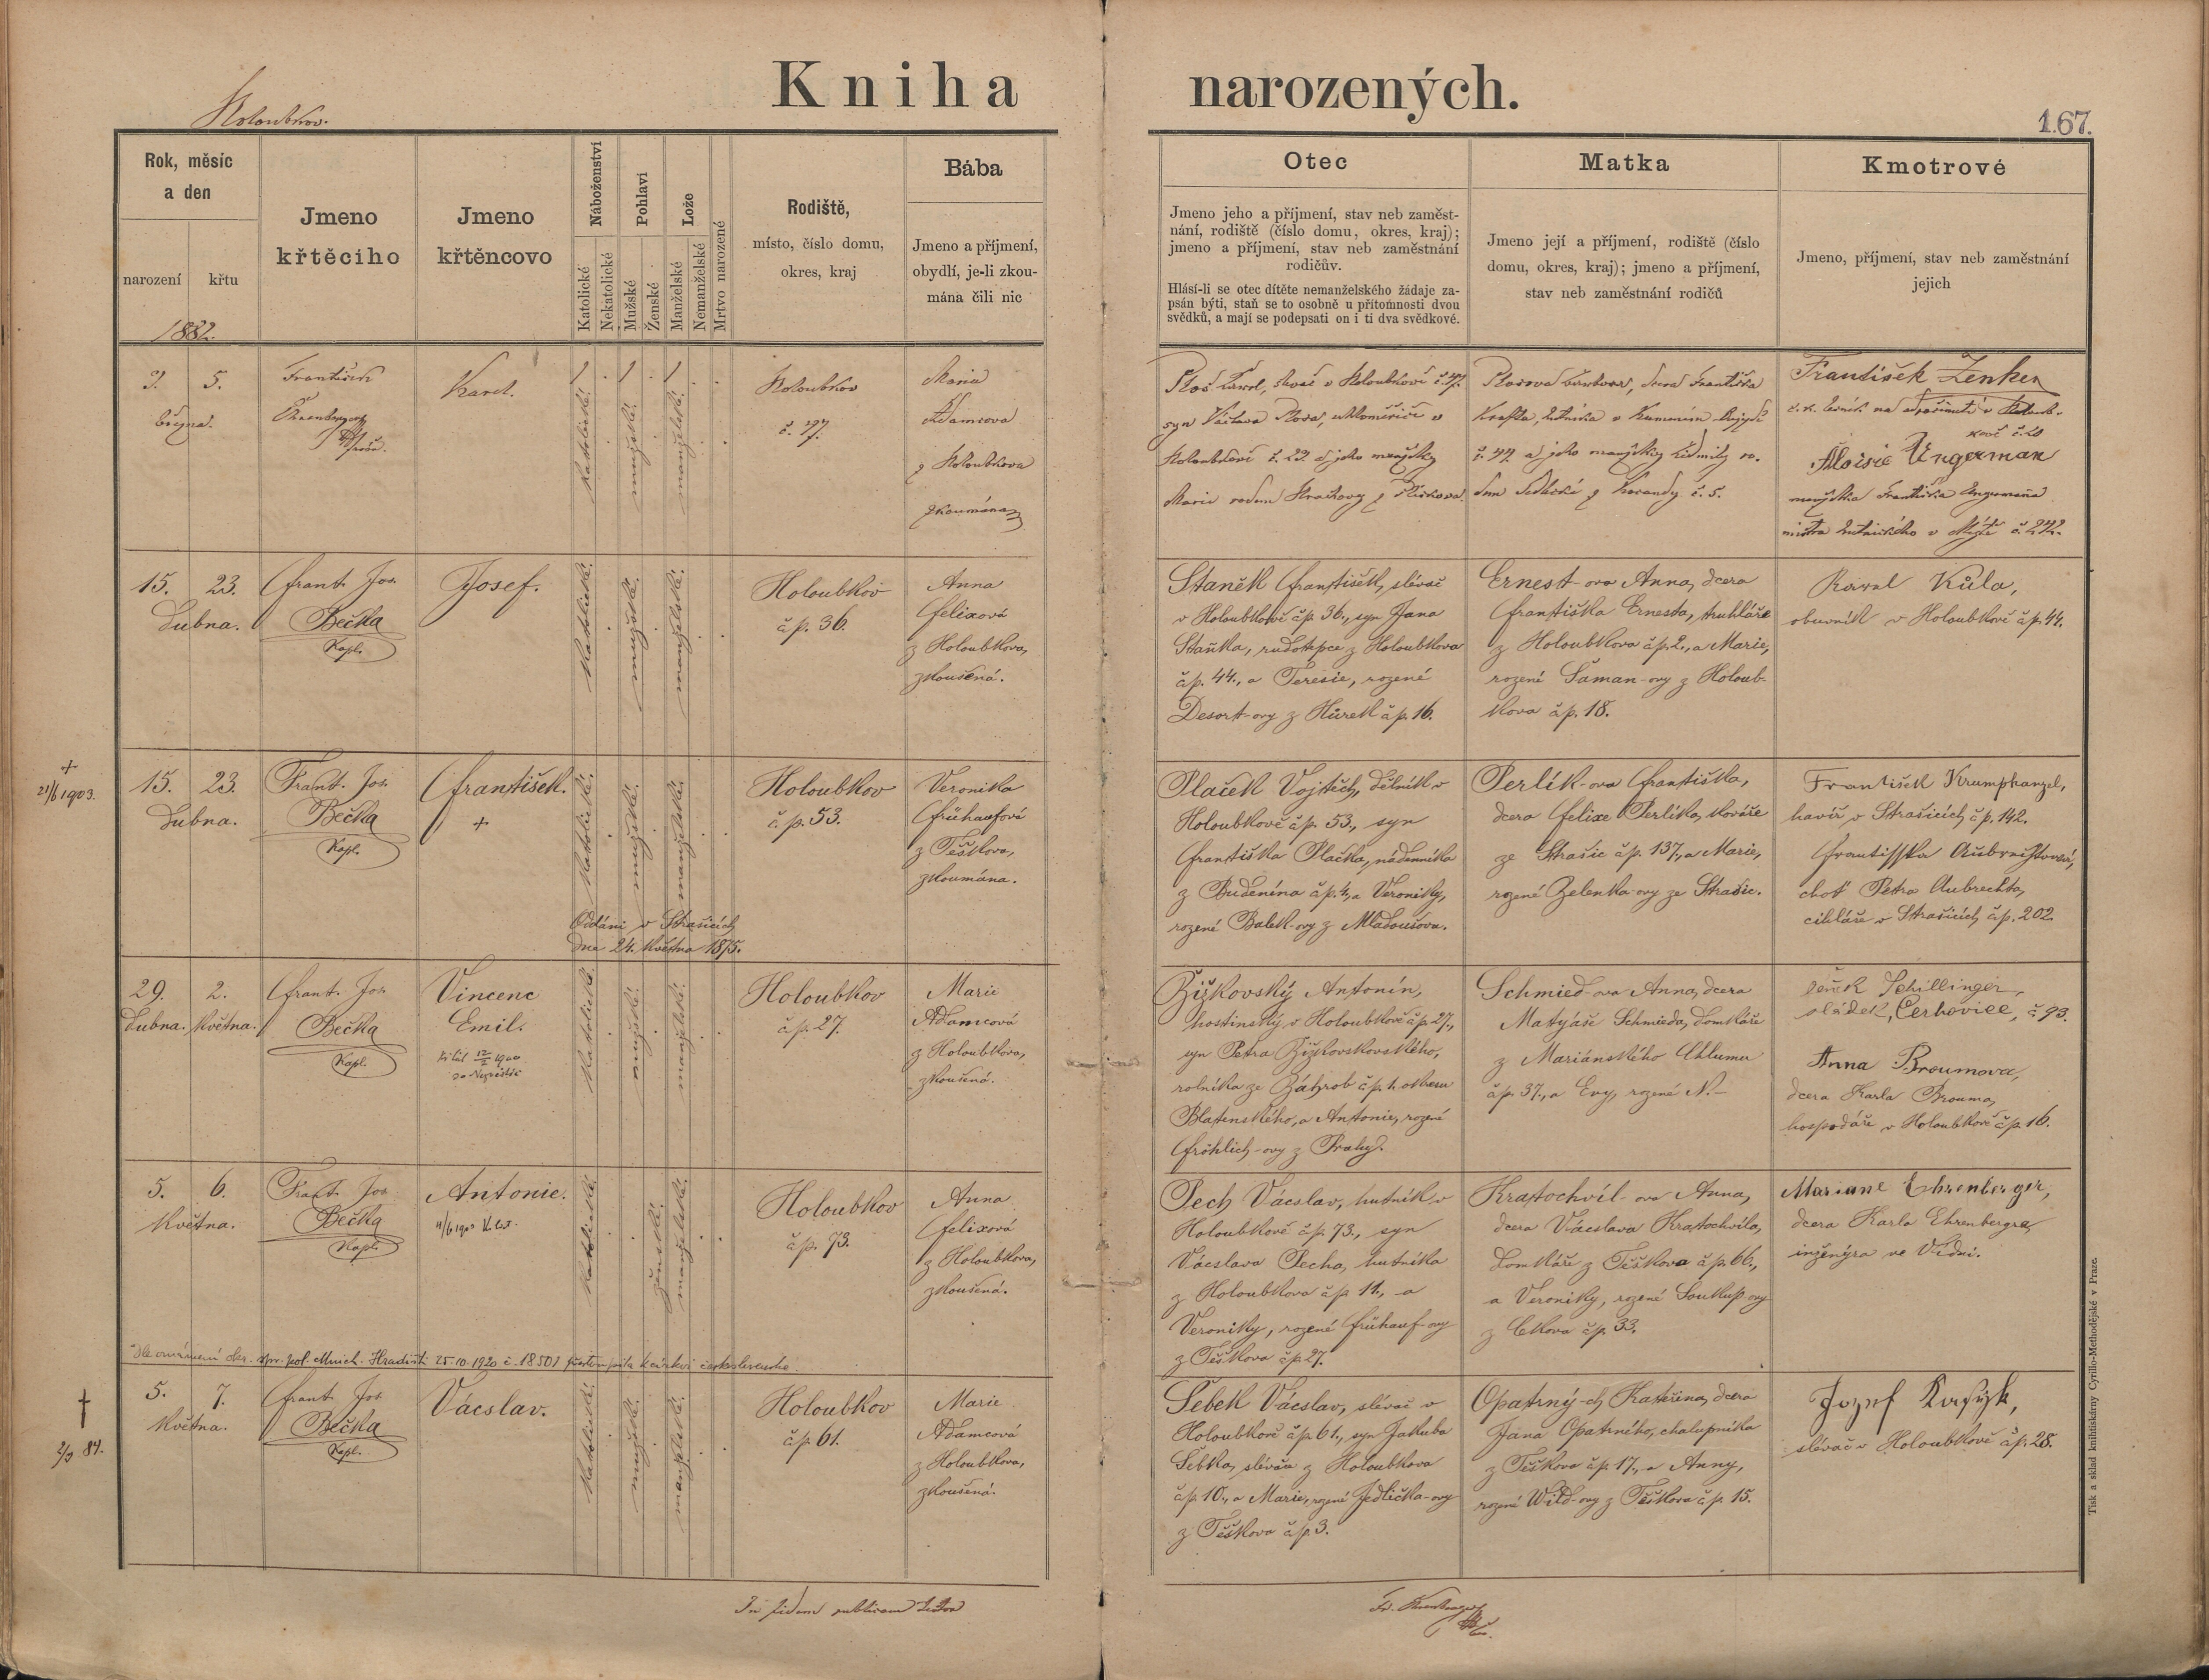 Kniha narozených.
Holoubkov.
167.
Rok, měsíc
a den
narození
křtu
1882.
Jmeno
křtěciho
Jmeno
křtěncovo
Náboženství
Katolické
Nekatolické
Pohlaví
Mužské
Ženské
Lože
Manželské
Nemanželské
Mrtvo narozené
Rodiště,
místo, číslo domu,
okres, kraj
Bába
Jmeno a příjmení,
obydlí, je-li zkou-
mána čili nic
Otec
Jmeno jeho a příjmení, stav neb zaměst-
nání, rodiště (číslo domu, okres, kraj);
jmeno a příjmení, stav neb zaměstnání
rodičův.
Hlásí-li se otec dítěte nemanželského žádaje za-
psán býti, staň se to osobně u přítomnosti dvou
svědků, a mají se podepsati on i ti dva svědkové.
Matka
Jmeno její a příjmení, rodiště (číslo
domu, okres, kraj); jmeno a příjmení,
stav neb zaměstnání rodičů
Kmotrové
Jmeno, příjmení, stav neb zaměstnání
jejich
3. 5.
března.
František
Ehrenberger
Karel.
katolické.
mužské.
manželské.
Holoubkov
č. 77.
Maria
Adamcova
z Holoubkova
zkoumána
syn Václava
Holoubkově č. 23. a jeho manželky
Marie rodem
č. 47 a jeho manželky Lidmily ro.
František Zenker
Aloisie Ungerman
manželka Františka Ungermana
mistra v Mýtě č. 242.
15. 23.
Dubna.
Frant. Jos.
Bečka
Kapl.
Josef.
katolické.
mužské.
manželské.
Holoubkov
čp. 36.
Anna
Felixová
z Holoubkova,
zkoušená.
Staněk František, slévač
v Holoubkově čp. 36., syn Jana
Staňka, rudotepce z Holoubkova
čp. 44., a Teresie, rozené
Desort-ovy z Hůrek čp. 16.
Ernest-ova Anna, dcera
Františka Ernesta, truhláře
z Holoubkova čp. 2., a Marie,
rozené Šaman-ovy z Holoub-
kova čp. 18.
Karel Kůla,
obuvník v Holoubkově čp. 44.
+
21/6 1903.
15. 23.
Dubna.
Frant. Jos.
Bečka
Kapl.
František.
+
katolické.
mužské.
manželské.
Oddáni v Strašicích
dne 24. Května 1875.
Holoubkov
č. p. 53.
Veronika
Frühaufová
z Těškova,
zkoumána.
Plaček Vojtěch, dělník v
Holoubkově čp. 53., syn
Františka Plačka, nádenníka
z Budenína čp. 4, a Veroniky,
rozené Balek-ovy z Mladoušova.
Perlík-ova Františka,
dcera Felixe Perlíka, kováře
ze Strašic čp. 137., a Marie,
rozené Zelenka-ovy ze Strašic.
František Krumphanzl,
havíř v Strašicích čp. 142.
Frantisska Aubrechtová,
choť Petra Aubrechta,
cihláře v Strašicích čp. 202.
29. 2.
Dubna. Května.
Frant. Jos.
Bečka
Kapl.
Vincenc
Emil.
katolické.
mužské.
manželské.
Holoubkov
čp. 27.
Marie
Adamcová
z Holoubkova,
zkoušená.
Žižkovský Antonín,
hostinský v Holoubkově čp. 27.,
syn Petra Žižkovskovského,
rolníka ze Záhrob čp. 1. okresu
Blatenského, a Antonie, rozené
Fröhlich-ovy z Prahy.
Schmied-ova Anna, dcera
Matyáše Schmieda, domkáře
z Mariánského Chlumu
čp. 37., a Evy, rozené N.-
Schillinger,
sládek, Cerhovice, č. 93.
Anna Broumova,
dcera Karla Brouma,
hospodáře v Holoubkově čp. 16.
5. 6.
Května.
Frant. Jos.
Bečka
Kapl.
Antonie.
katolické.
ženské.
manželské.
Holoubkov
čp. 73.
Anna
Felixová
z Holoubkova,
zkoušená.
Pech Václav, hutník v
Holoubkově čp. 73., syn
Vácslava Pecha, hutníka
z Holoubkova čp. 11., a
Veroniky, rozené Frühauf-ovy
z Těškova čp. 27.
Kratochvíl-ova Anna,
dcera Vácslava Kratochvíla,
domkáře z Těškova čp. 66.,
a Veroniky, rozené Soukup-ovy
z Cekova čp. 33.
Mariane Ehrenberger,
dcera Karla Ehrenbergra,
inženýra ve Vídni.
Dle oznámení okr. spr. pol. Mnich. Hradiště 25.10.1920 č. 18501 přestoupila k církvi československé.
†
2/9 84.
5. 7.
Května.
Frant. Jos.
Bečka
Kapl.
Vácslav.
katolické.
mužské.
manželské.
Holoubkov
čp. 61.
Marie
Adamcová
z Holoubkova,
zkoušená.
Šebek Vácslav, slévač v
Holoubkově čp. 61., syn Jakuba
Šebka, slévače z Holoubkova
čp. 10., a Marie, rozené Jedlička-ovy
z Těškova čp. 3.
Opatrný-ch Kateřina, dcera
Jana Opatrného, chalupníka
z Těškova čp. 17., a Anny,
rozené Wild-ovy z Těškova čp. 15.
Jozef
slévač v Holoubkově čp. 28.
In fidem publicam
Fr. Ehrenberger
Tisk a sklad knihtiskárny Cyrillo-Methodějské v Praze.